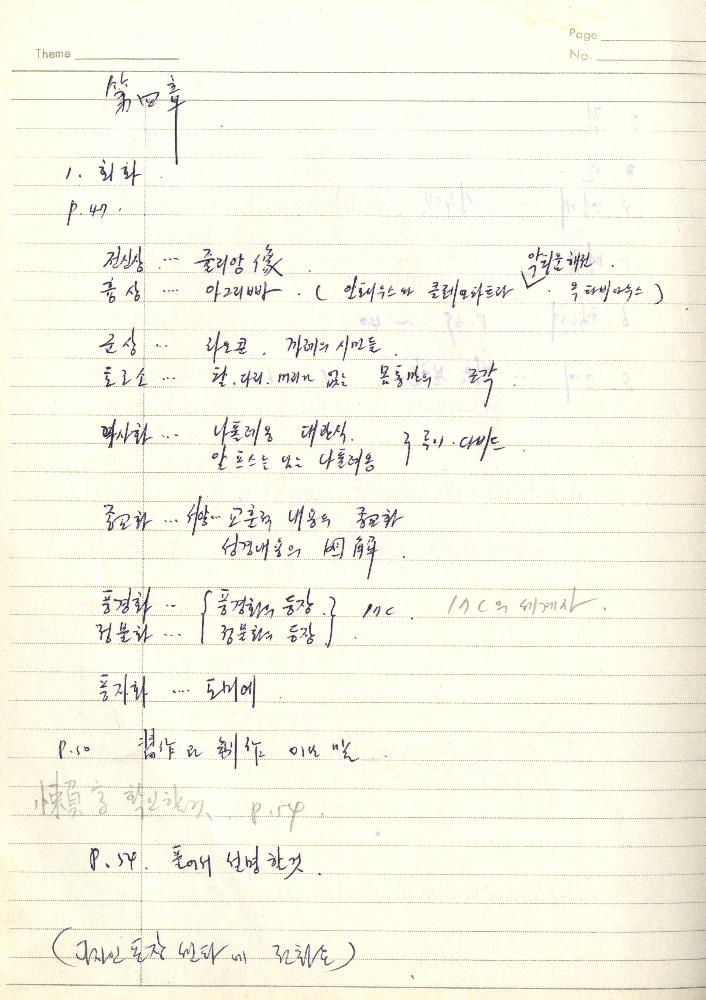 Page
Theme
No.
第四章
1. 회화
P.47.
전신상 … 줄리앙 像
악티움 해전
흉상 … 아그리빠 . ( 안토니우스와 클레오파트라 . 옥타비아누스 )
군상 … 라오콘 . 깔레의 시민들
토르소 … 팔.다리.머리가 없는 몸통만의 조각
역사화 … 나폴레옹 대관식.
알프스를 넘는 나폴레옹 } 루이.다비드
종교화 … 서양… 교훈적 내용의 종교화
성경내용의 図解
풍경화 … { 풍경화의 등장. } 17C. 17C의 세계사.
정물화 … { 정물화의 등장 }
풍자화 … 도미에
P.50 習作과 創作 이란 말
懶字 확인할것. P.54.
P.54. 풀어서 설명한것
(디자인 포장 센타에 전화로)